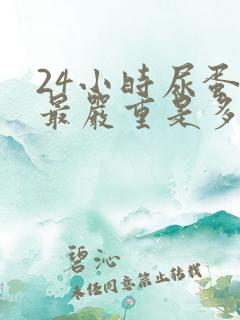 24小時尿蛋
最嚴重是多
碧沁
未任同意禁止转载